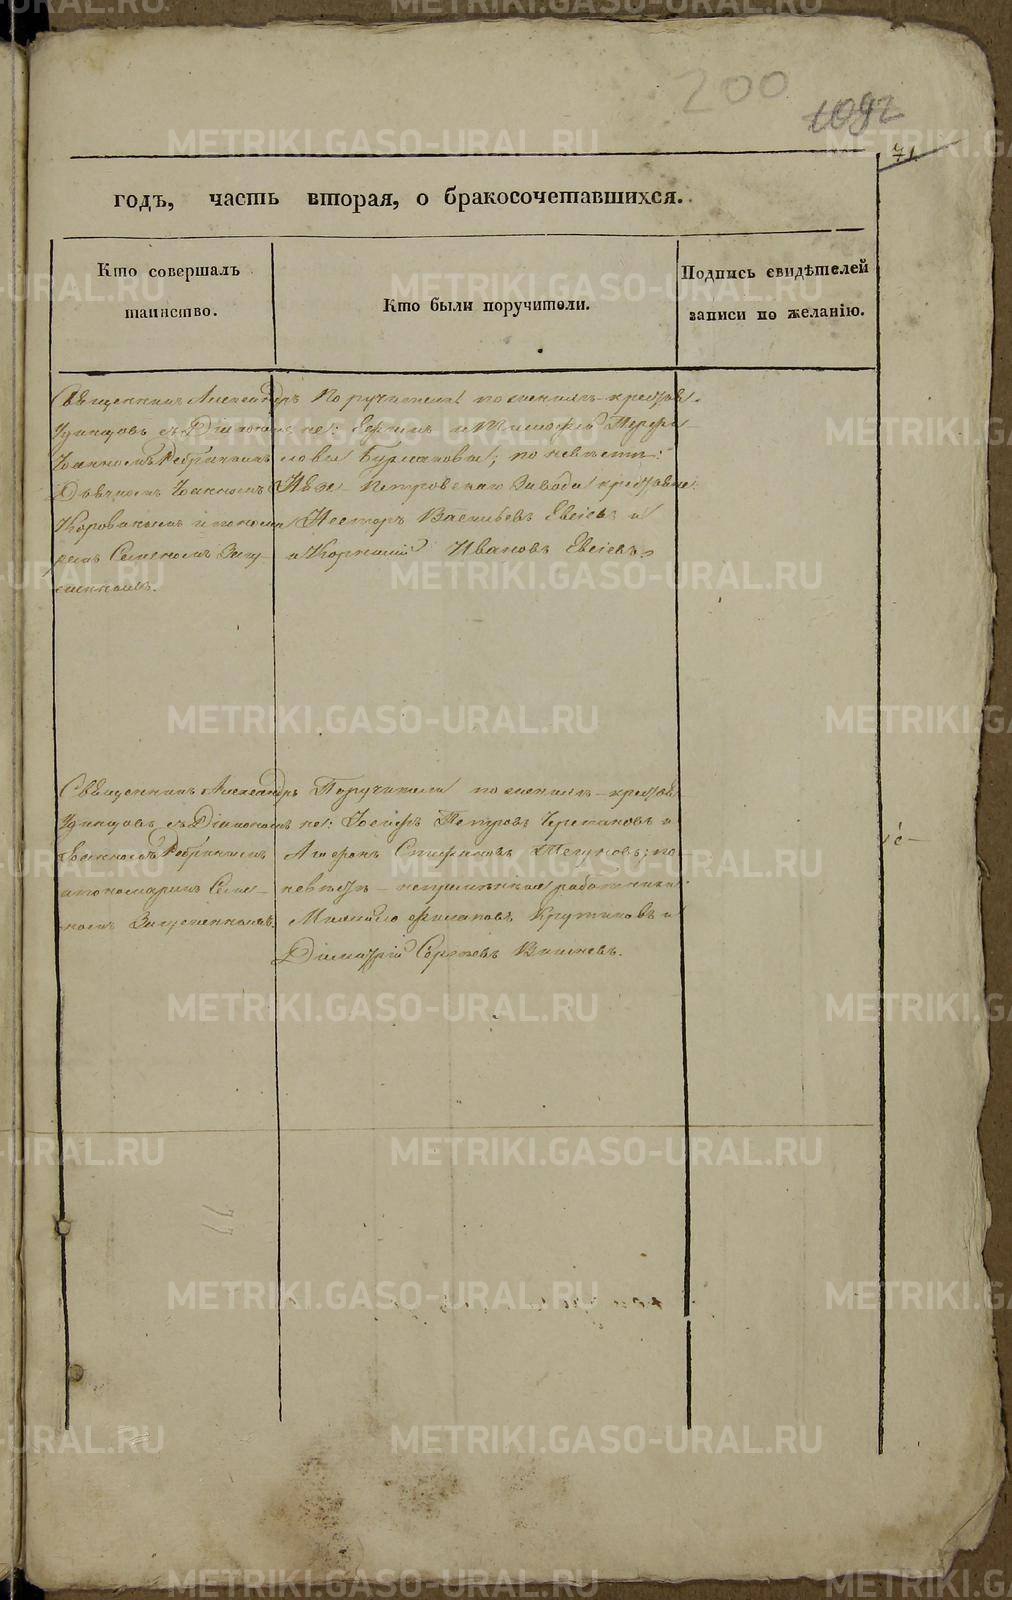 200
1092
71
годъ, часть вторая, о бракосочетавшихся.
Кто совершалъ
таинство.
Кто были поручители.
Подпись свидѣтелей
записи по желанію.
Священникъ Александръ
Удинцовъ съ Діакономъ
Іоанномъ Ребринымъ
Дьячкомъ Іоанномъ
Коровинымъ и понома
ремъ Семеномъ
Поручители по женихѣ крестьяне
не: Ефимъ и Тимофей
ловы Бурмаковы; по невѣстѣ:
Петровскаго Завода крестьяне
Несторъ Васильевъ Евсѣевъ и
и Корнилій Ивановъ Евсѣевъ.
Священникъ Александръ
Удинцовъ съ Діакономъ
Іоанномъ Ребринымъ
и пономаремъ Семе-
номъ
Поручители по женихѣ крестья
не: Іосифъ Петровъ Черепановъ и
Агафонъ Стефановъ по
невѣстѣ непремѣнные работники
Михайло Филатовъ Крутиковъ и
Димитрій Сергѣевъ
METRIKI.GASO-URAL.RU